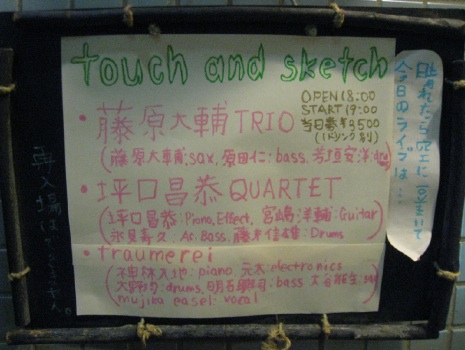 touch and sketch
OPEN 18:00
START 19:00
当日券 ¥3500
(1ドリンク有り)
・藤原大輔TRIO
(藤原大輔:sax, 原田仁:bass, 芳垣安洋:drs)
・坪口昌恭QUARTET
(坪口昌恭:Piano,Effect, 宮嶋洋輔:Guitar
永見寿久, Ac.Bass, 藤本信雄:Drums)
・traumerei
神林 : piano 元木:electronics
:drums, 明石興司:bass 大谷
mujika easel: vocal
晴れたら空に豆まいて
今日のライブは…
再入場はできます。